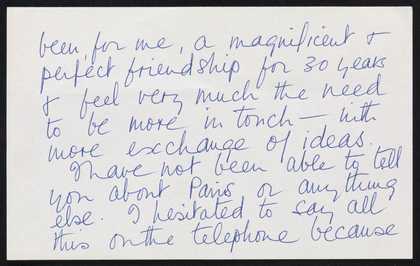 been, for me, a magnificent &
perfect friendship for 30 years
& feel very much the need
to be more in touch – with
more exchange of ideas.
I have not been able to tell
you about Paris or anything
else. I hesitated to say all
this on the telephone because